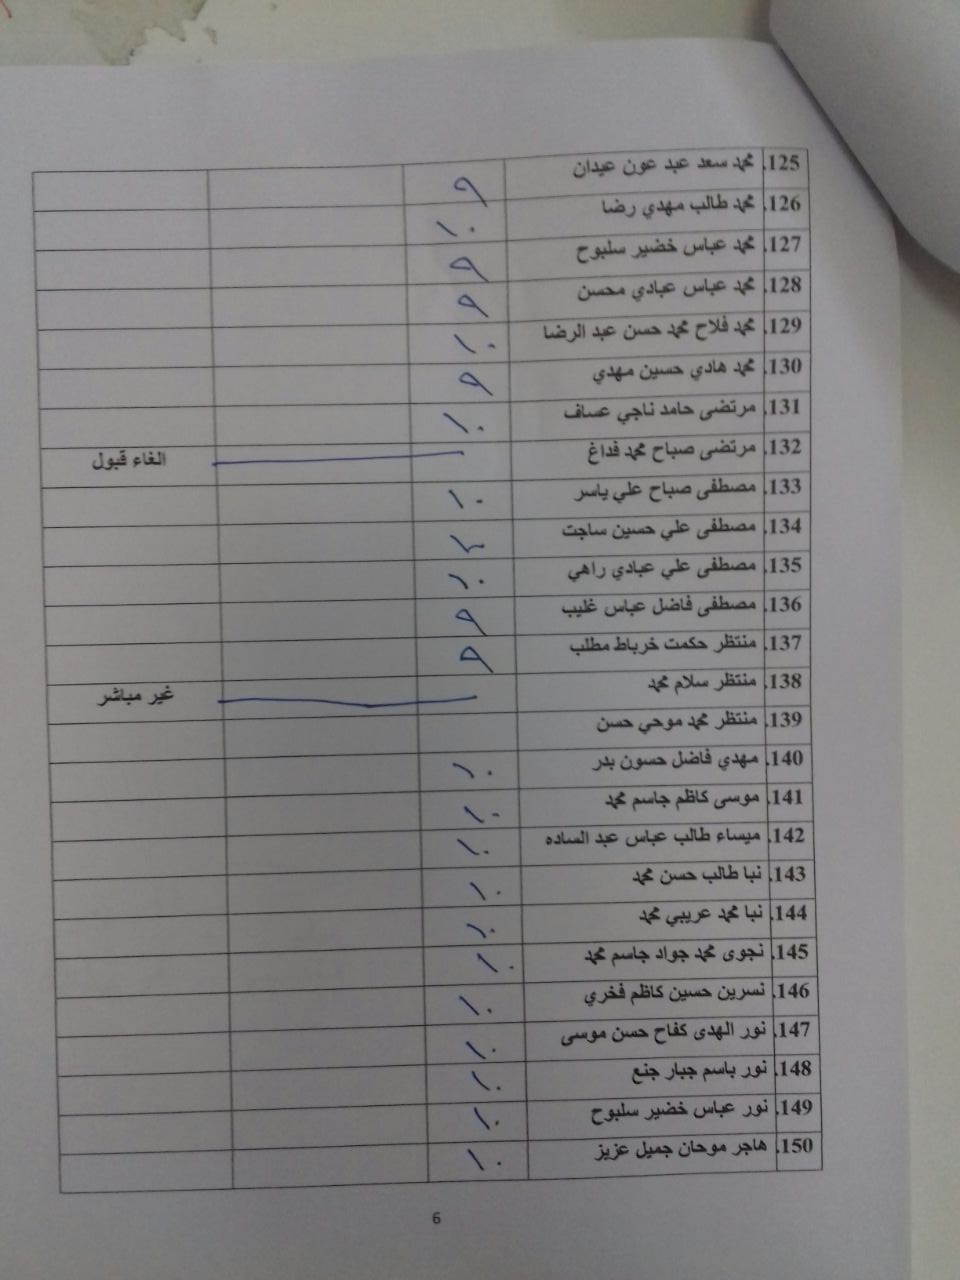 125. محمد سعد عبد عون عيدان ٩
126. محمد طالب مهدي رضا ١٠
127. محمد عباس خضير سلبوح ٩
128. محمد عباس عبادي محسن ٩
129. محمد فلاح محمد حسن عبد الرضا ١٠
130. محمد هادي حسين مهدي ٩
131. مرتضى حامد ناجي عساف ١٠
132. مرتضى صباح محمد فداغ الغاء قبول
133. مصطفى صباح علي ياسر ١٠
134. مصطفى علي حسين ساجت
135. مصطفى علي عبادي راهي ١٠
136. مصطفى فاضل عباس غليب ٩
137. منتظر حكمت خرباط مطلب ٩
138. منتظر سلام محمد غير مباشر
139. منتظر محمد موحي حسن
140. مهدي فاضل حسون بدر ١٠
141. موسى كاظم جاسم محمد ١٠
142. ميساء طالب عباس عبد الساده ١٠
143. نبا طالب حسن محمد ١٠
144. نبا محمد عريبي محمد ١٠
145. نجوى محمد جواد جاسم محمد ١٠
146. نسرين حسين كاظم فخري ١٠
147. نور الهدى كفاح حسن موسى ١٠
148. نور باسم جبار جنع ١٠
149. نور عباس خضير سلبوح ١٠
150. هاجر موحان جميل عزيز ١٠
6